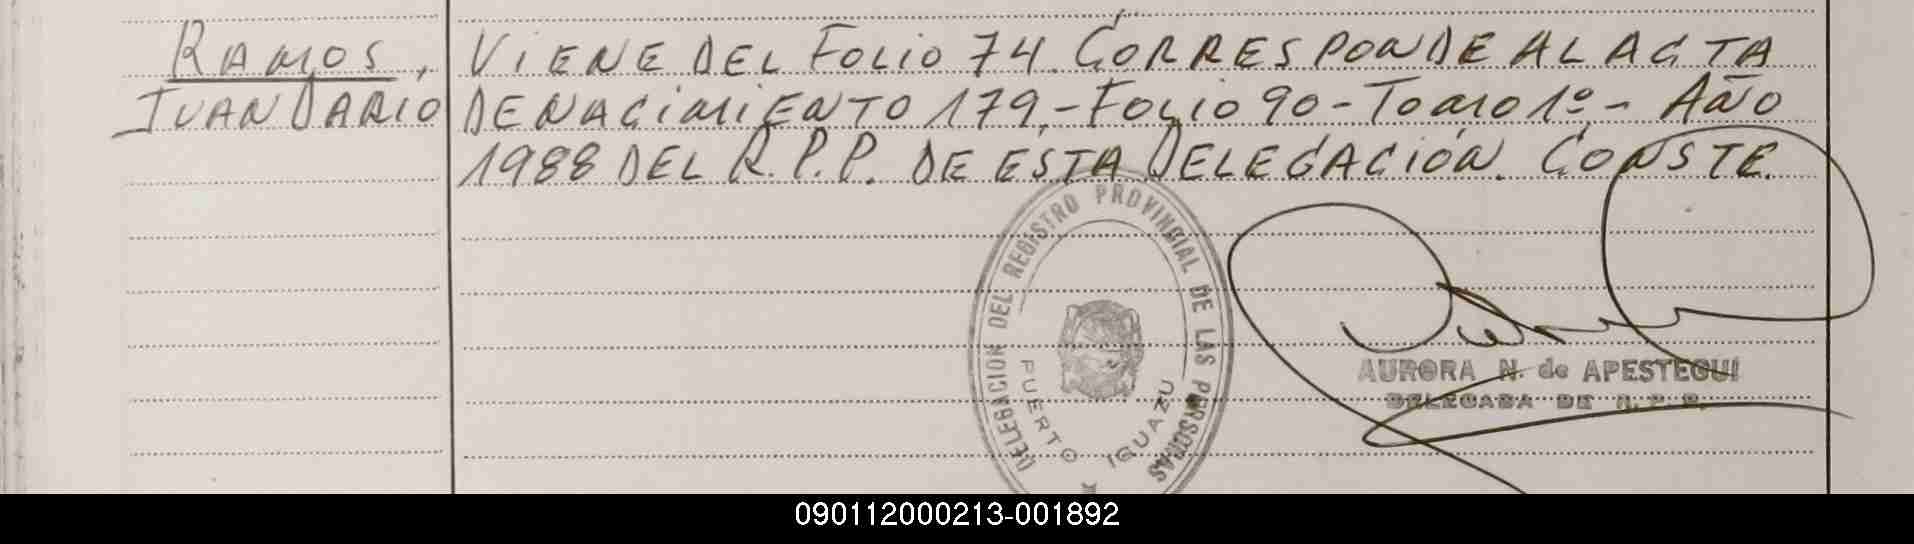 RAMOS,
JUAN DARIO
VIENE DEL FOLIO 74. CORRESPONDE AL ACTA
DE NACIMIENTO 179.- FOLIO 90 - TOMO 1º - AÑO
1988 DEL R.P.P. DE ESTA DELEGACIÓN. CONSTE.
DELEGACION DEL REGISTRO PROVINCIAL DE LAS PERSONAS
PUERTO IGUAZU
AURORA N. de APESTEGUI
DELEGADA DE R.P.P.
090112000213-001892